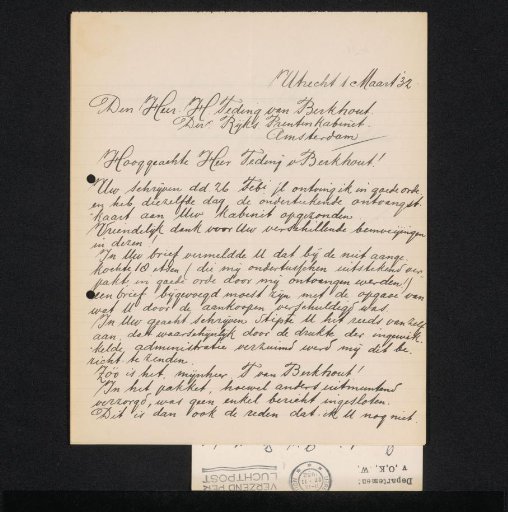 Utrecht 1 Maart '32
Den Heer H Teding van Berkhout
Dir. Ryks Prentenkabinet.
Amsterdam
Hooggeachte Heer Teding v Berkhout!
Uw schrijven dd 26 Feb. jl ontving ik in goede orde
en heb diezelfde dag de onderteekende ontvangst-
kaart aan Uw kabinet opgezonden
Vriendelijk dank voor Uw verschillende bemoeijingen
in dezen!
In Uw brief vermeldde U dat bij de niet aange
kochte 10 etsen (die mij ondertusschen uitstekend ver
pakt en in goede orde door mij ontvangen werden)
een brief bijgevoegd moest zijn met de opgave van
wat U door de aankoopen verschuldigd was.
In Uw geacht schrijven stipte U het reeds van zelf
aan, dat waarschijnlijk door de drukte der ingewik-
kelde administratie verzuimd werd mij dit be-
richt te zenden.
Zóó is het, mijnheer T van Berkhout!
In het pakket, hoewel anders uitmuntend
verzorgd, was geen enkel bericht ingesloten.
Dit is dan ook de reden dat ik U nog niet.
Departement
v. O. K. W.
VERZEND PER
LUCHTPOST